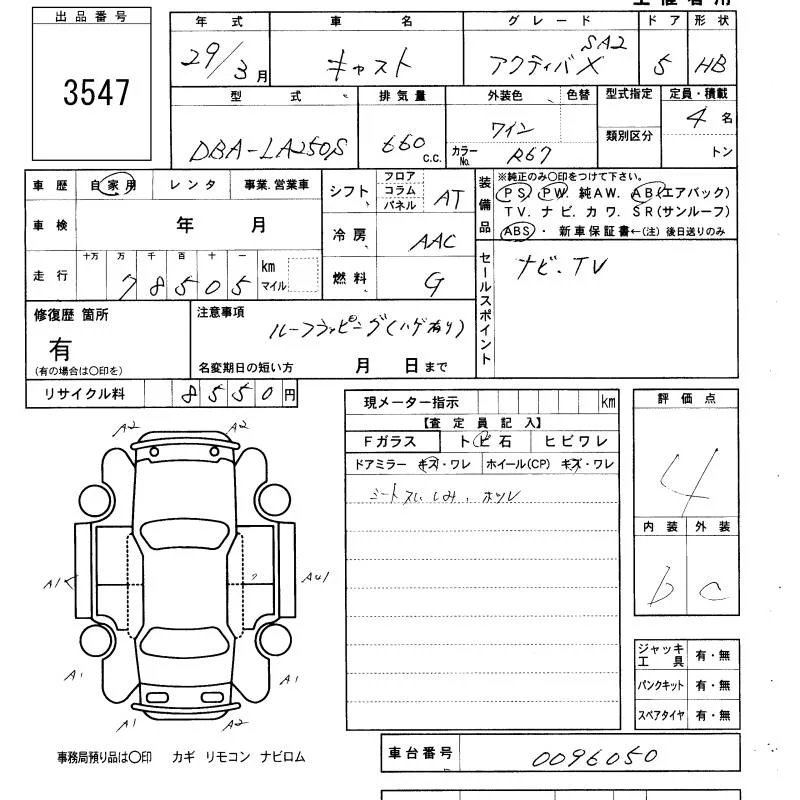 出品番号
3547
年式 車名 グレード ドア 形状
29/3月 キャスト アクティバX SA2 5 HB
型式 排気量 外装色 色替 型式指定 定員・積載
DBA-LA250S 660 c.c. ワイン 類別区分 4名
カラーNo. R67 トン
車歴 自家用 レンタ 事業.営業車
シフト フロア コラム パネル AT
装備品 ※純正のみ〇印をつけて下さい。
PS. PW. 純AW. AB(エアバック)
TV. ナビ. カワ. SR(サンルーフ)
ABS・新車保証書←(注) 後日送りのみ
車検 年 月
冷房 AAC
走行 十万 万 千 百 十 一 km マイル
78505
燃料 G
セールスポイント ナビ、TV
修復歴 箇所
有
(有の場合は〇印を)
注意事項
ルーフラッピング(ハゲ有り)
名変期日の短い方 月 日まで
リサイクル料 8550円
現メーター指示 km
【査定員記入】
Fガラス トビ石 ヒビワレ
ドアミラー キズ・ワレ ホイール(CP) キズ・ワレ
評価点
4
内装 外装
b c
A2 A2
A1 A1
A1 A2
ジャッキ工具 有・無
パンクキット 有・無
スペアタイヤ 有・無
事務局預り品は〇印 カギ リモコン ナビロム
車台番号 0096050